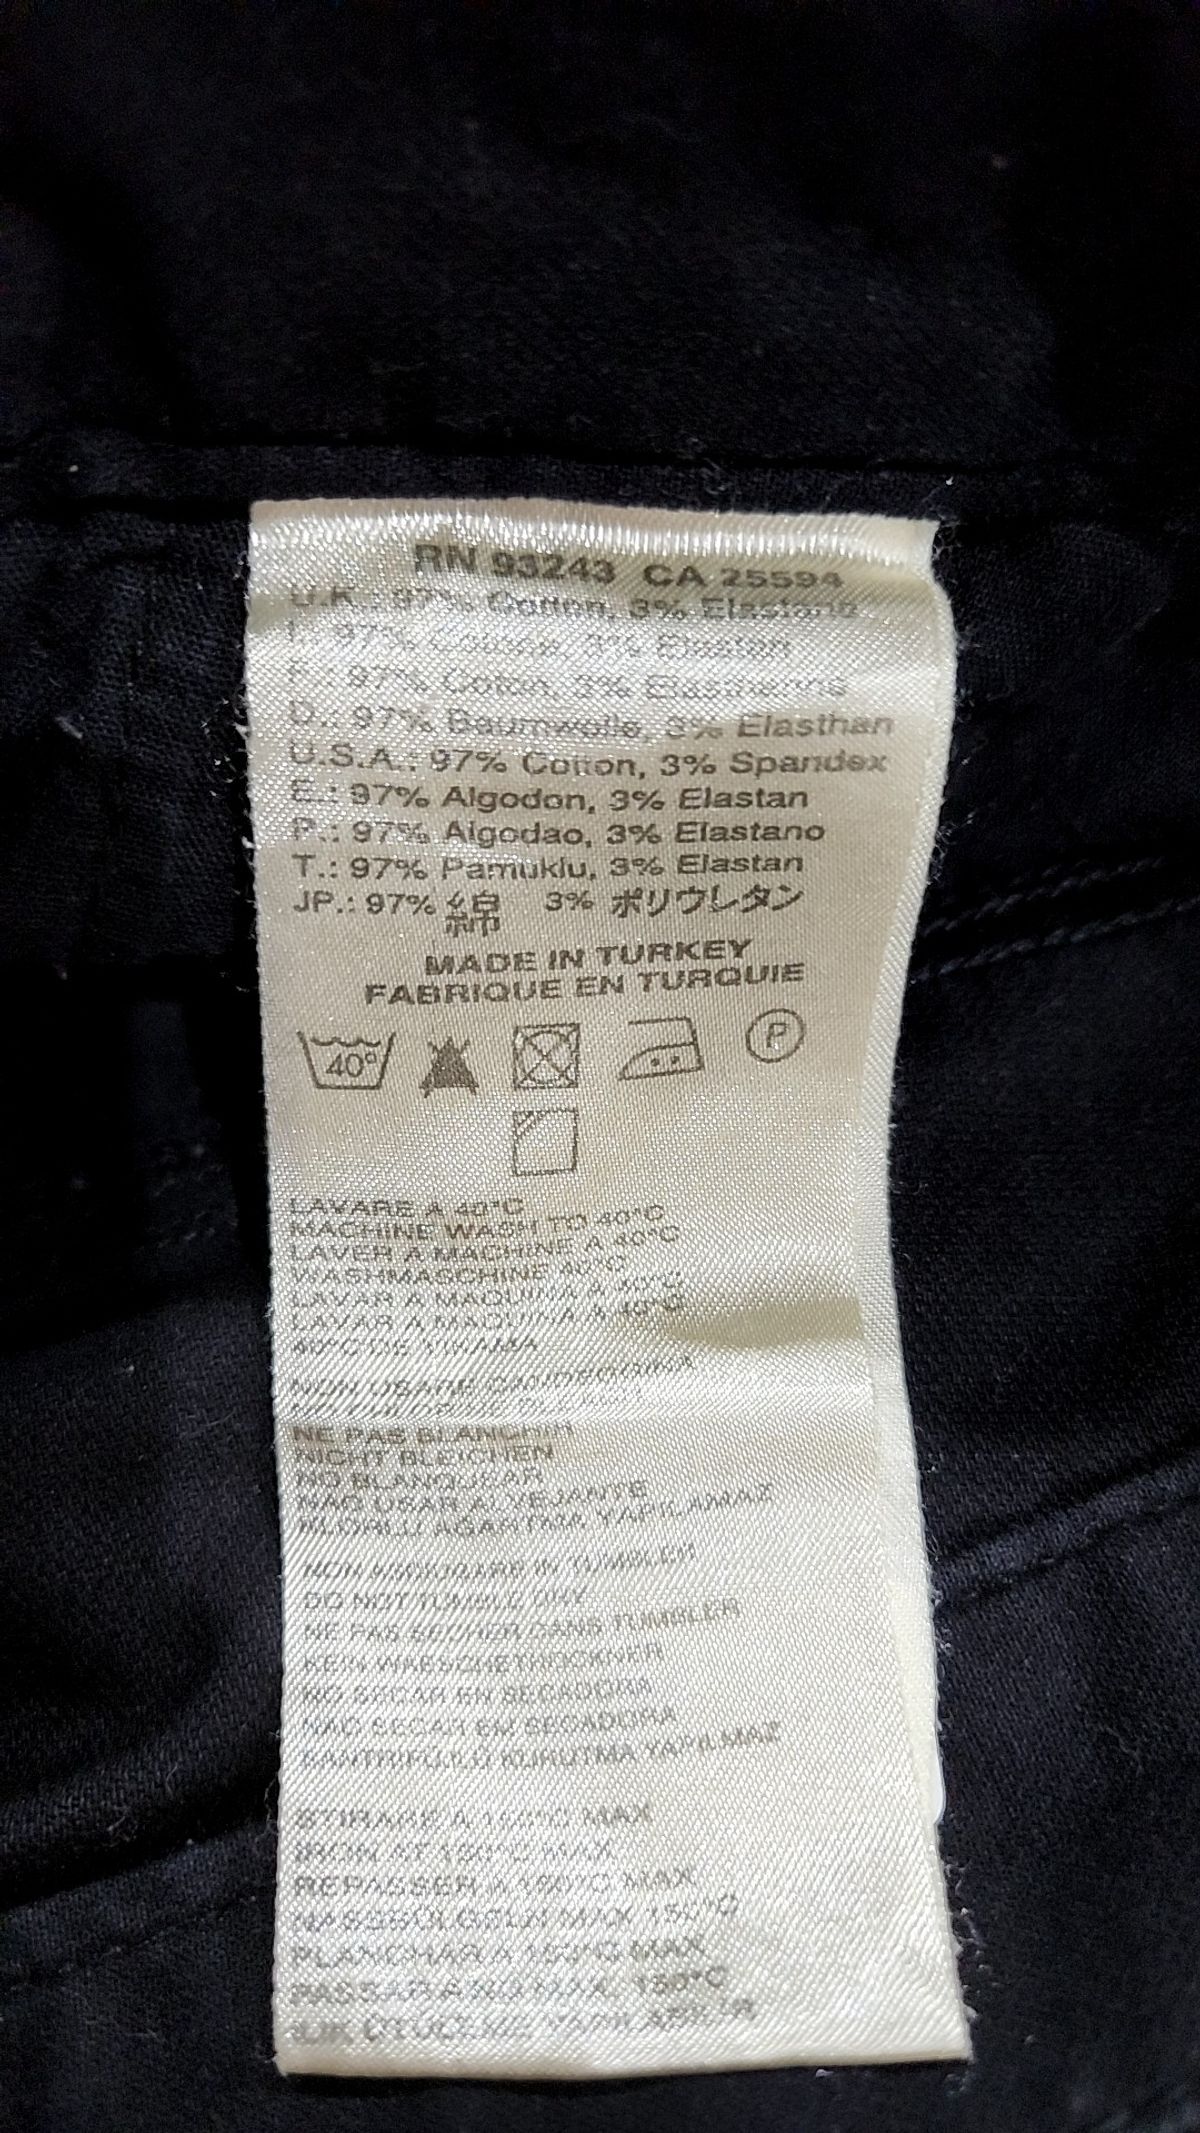 RN 93243 CA 25594
U.K.: 97% Cotton, 3% Elastane
I.: 97% Cotone, 3% Elastan
F.: 97% Coton, 3% Elasthanne
D.: 97% Baumwolle, 3% Elasthan
U.S.A.: 97% Cotton, 3% Spandex
E.: 97% Algodon, 3% Elastan
P.: 97% Algodao, 3% Elastano
T.: 97% Pamuklu, 3% Elastan
JP.: 97% 綿 3% ポリウレタン
MADE IN TURKEY
FABRIQUE EN TURQUIE
40°
P
LAVARE A 40°C
MACHINE WASH TO 40°C
LAVER A MACHINE A 40°C
WASHMASCHINE 40°C
LAVAR A MAQUINA A 40°C
LAVAR A MAQUINA A 40°C
40°C DE YIKAMA
NON USARE CANDEGGINA
NE PAS BLANCHIR
NICHT BLEICHEN
NO BLANQUEAR
NAO USAR ALVEJANTE
KLORLU AGARTMA YAPILAMAZ
NON ASCIUGARE IN TUMBLER
DO NOT TUMBLE DRY
NE PAS SECHER DANS TUMBLER
KEIN WAESCHETROCKNER
NO SECAR EN SECADORA
NAO SECAR EM SECADORA
SANTRIFUJLU KURUTMA YAPILMAZ
STIRAGE A 150°C MAX
IRON AT 150°C MAX
REPASSER A 150°C MAX
MAX 150°C
PLANCHAR A 150°C MAX
PASSAR ANO MAX. 150°C
YAPILABILIR